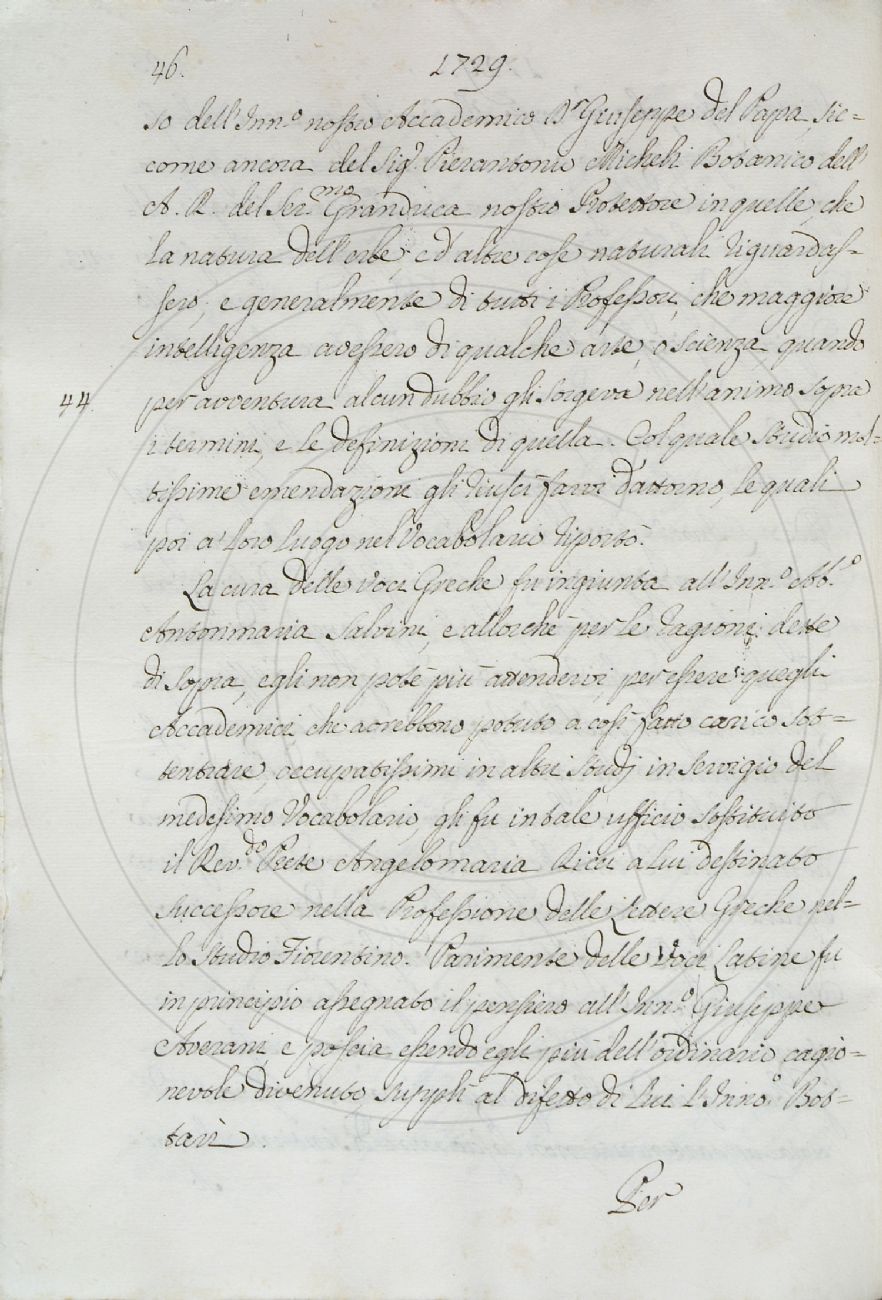 46. 1729.
so dell'Inn.º nostro Accademico D.r Giuseppe del Papa, sic=
come ancora del Sig.r Pierantonio Micheli Botanico dell'
A. R. del Ser.mo Granduca nostro Protettore in quelle, che
la natura dell'erbe, e d'altre cose naturali riguardas=
sero, e generalmente di tutti i Professori, che maggiore
intelligenza avessero di qualche arte, o scienza, quando
44. per avventura alcun dubbio gli sorgeva nell'animo sopra
i termini, e le definizioni di quella. Col quale studio mol=
tissime emendazioni gli riuscì farvi d'attorno, le quali
poi a' loro luogo nel Vocabolario riportò.
La cura delle voci Greche fu ingiunta all'Inn.º Ab.º
Antonmaria Salvini, e allorchè per le ragioni dette
di sopra, egli non potè più attendervi, per essere quegli
Accademici che avrebbono potuto a così fatto carico sot=
tentrare, occupatissimi in altri studj in servigio del
medesimo Vocabolario, gli fu in tale ufficio sostituito
il Rev.do Prete Angelomaria Ricci a lui destinato
successore nella Professione delle Lettere Greche nel=
lo Studio Fiorentino. Parimente delle Voci Latine fu
in principio assegnato il pensiero all'Inn.º Giuseppe
Averani e poscia essendo egli più dell'ordinario cagio=
nevole divenuto, supplì al difetto di lui l'Inno.º Bot=
tari.
Per